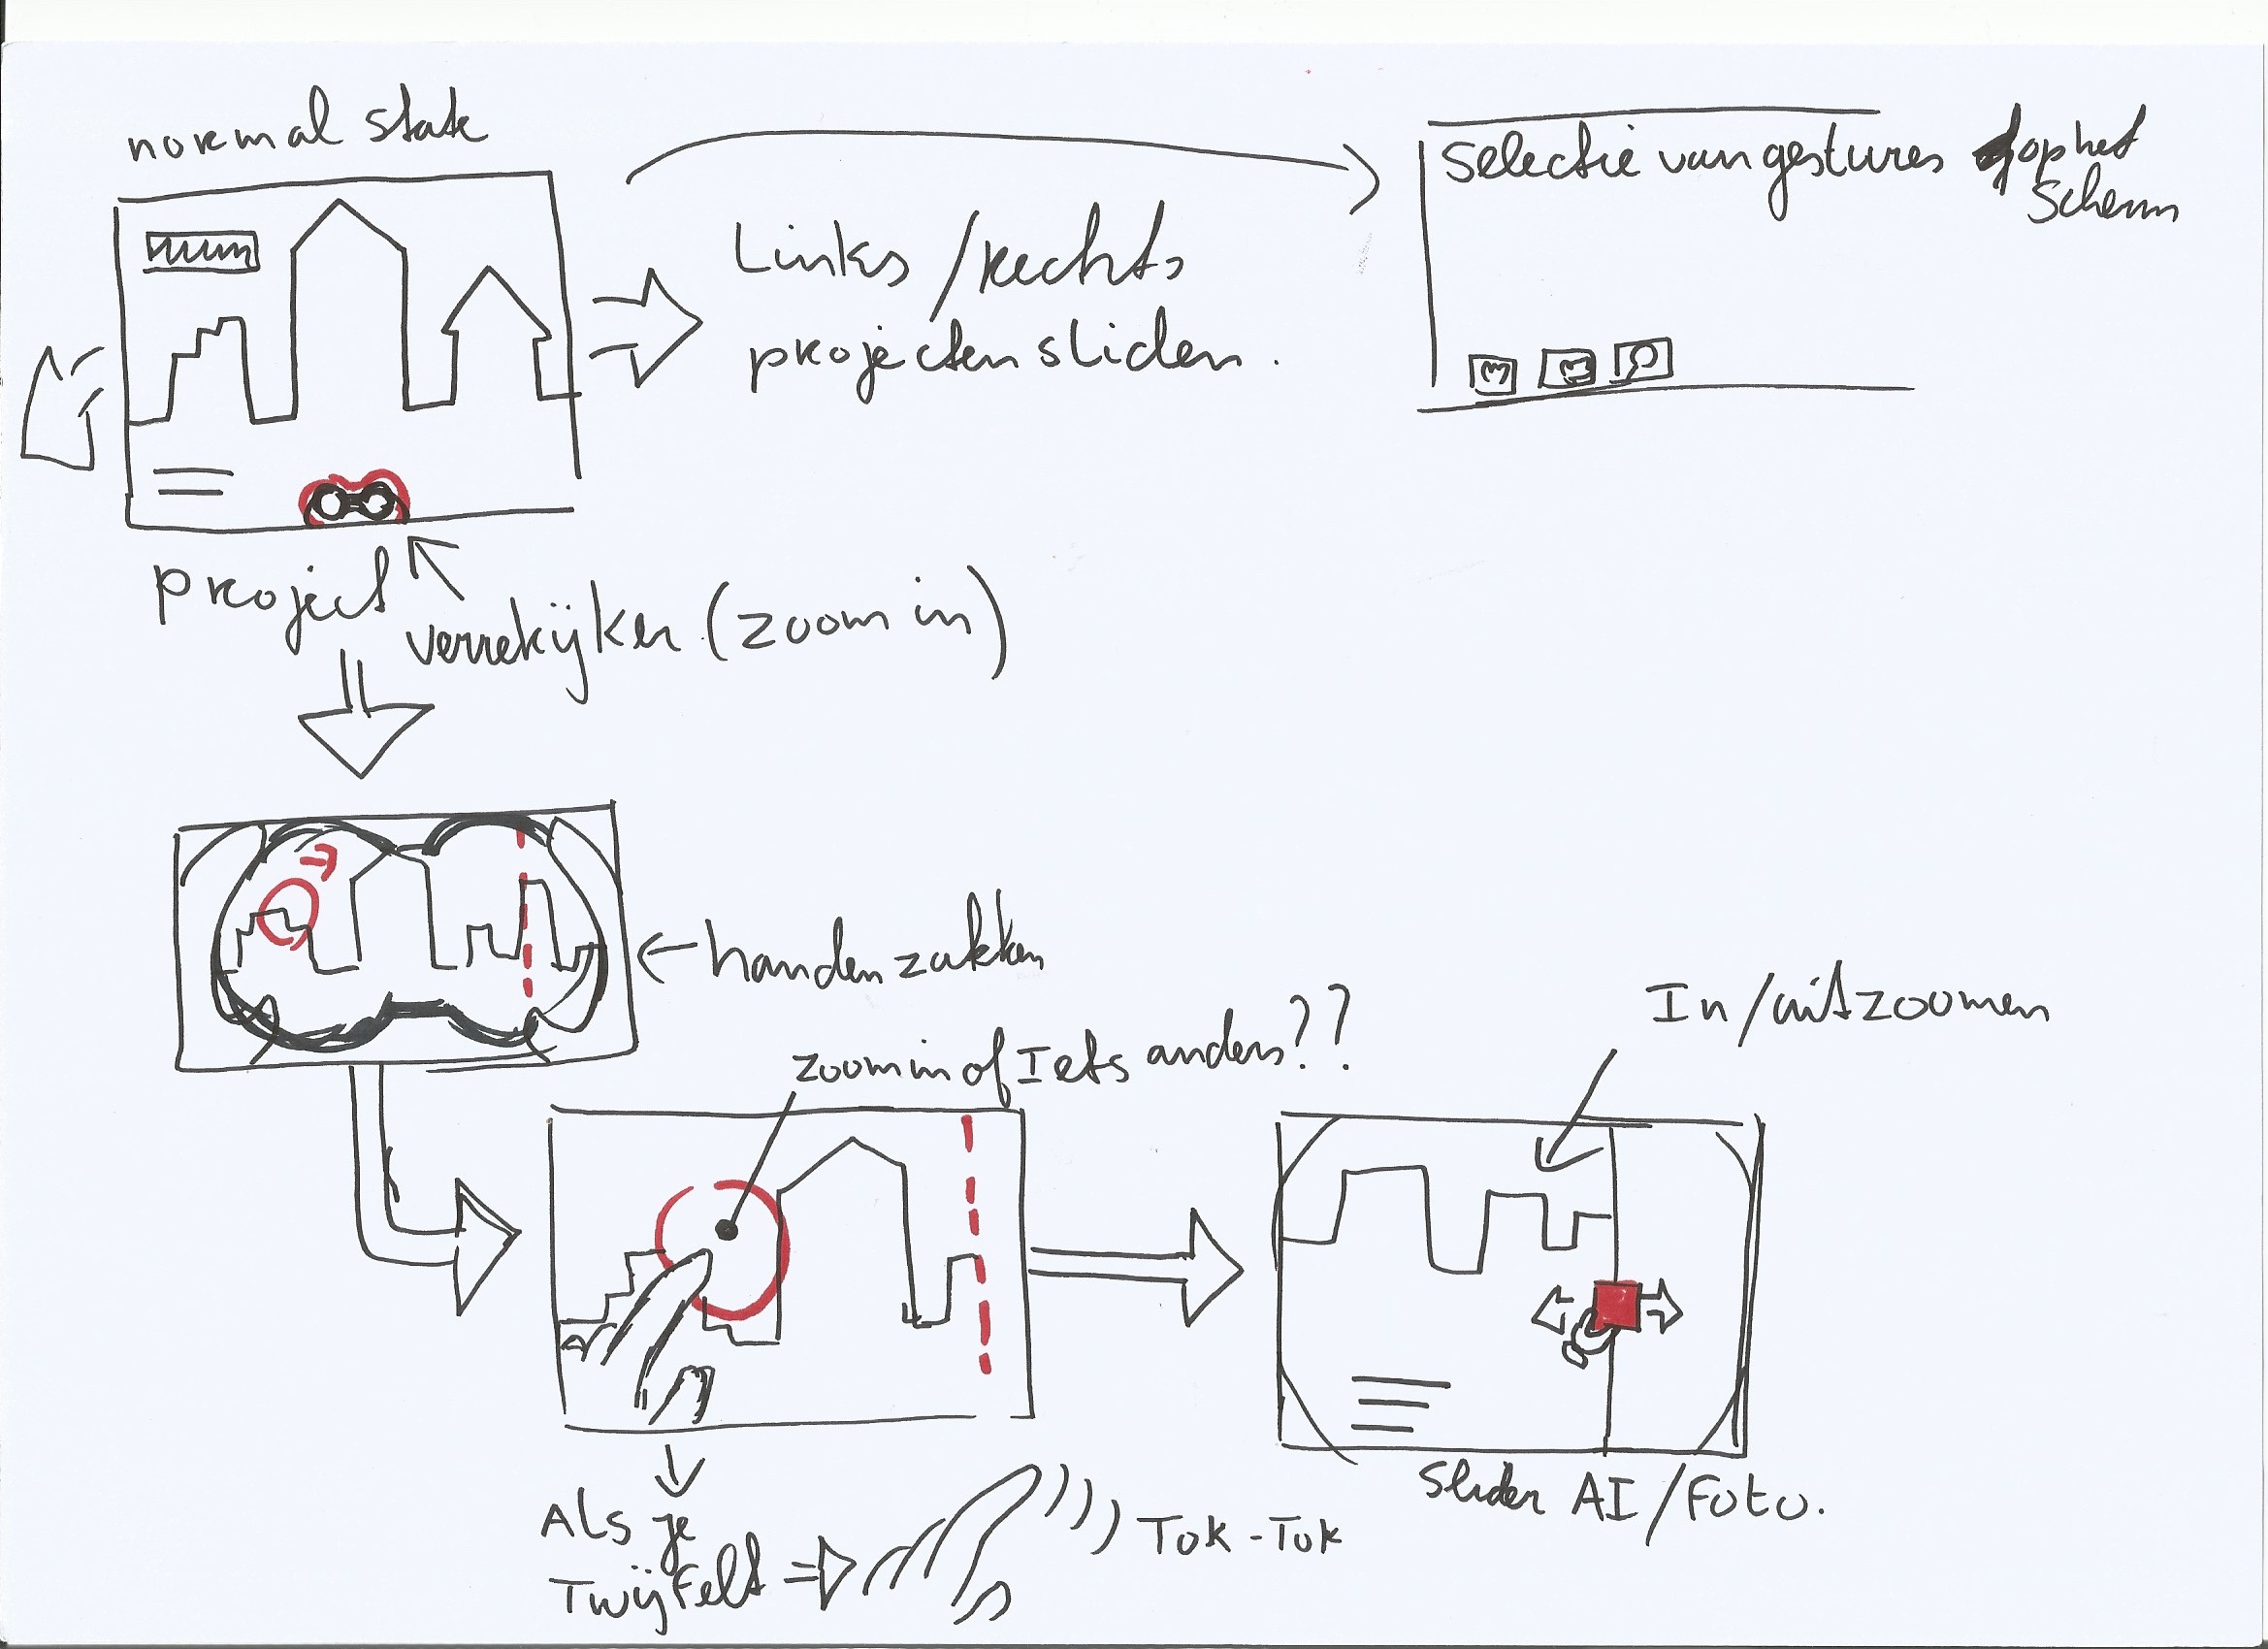 normal state
Links/rechts
projecten sliden.
selectie van gestures op het
scherm
project
verrekijker (zoom in)
handen zakken
zoom in of Iets anders??
In/uitzoomen
Als je
Twijfelt
Tok-Tok
slider AI/Foto.